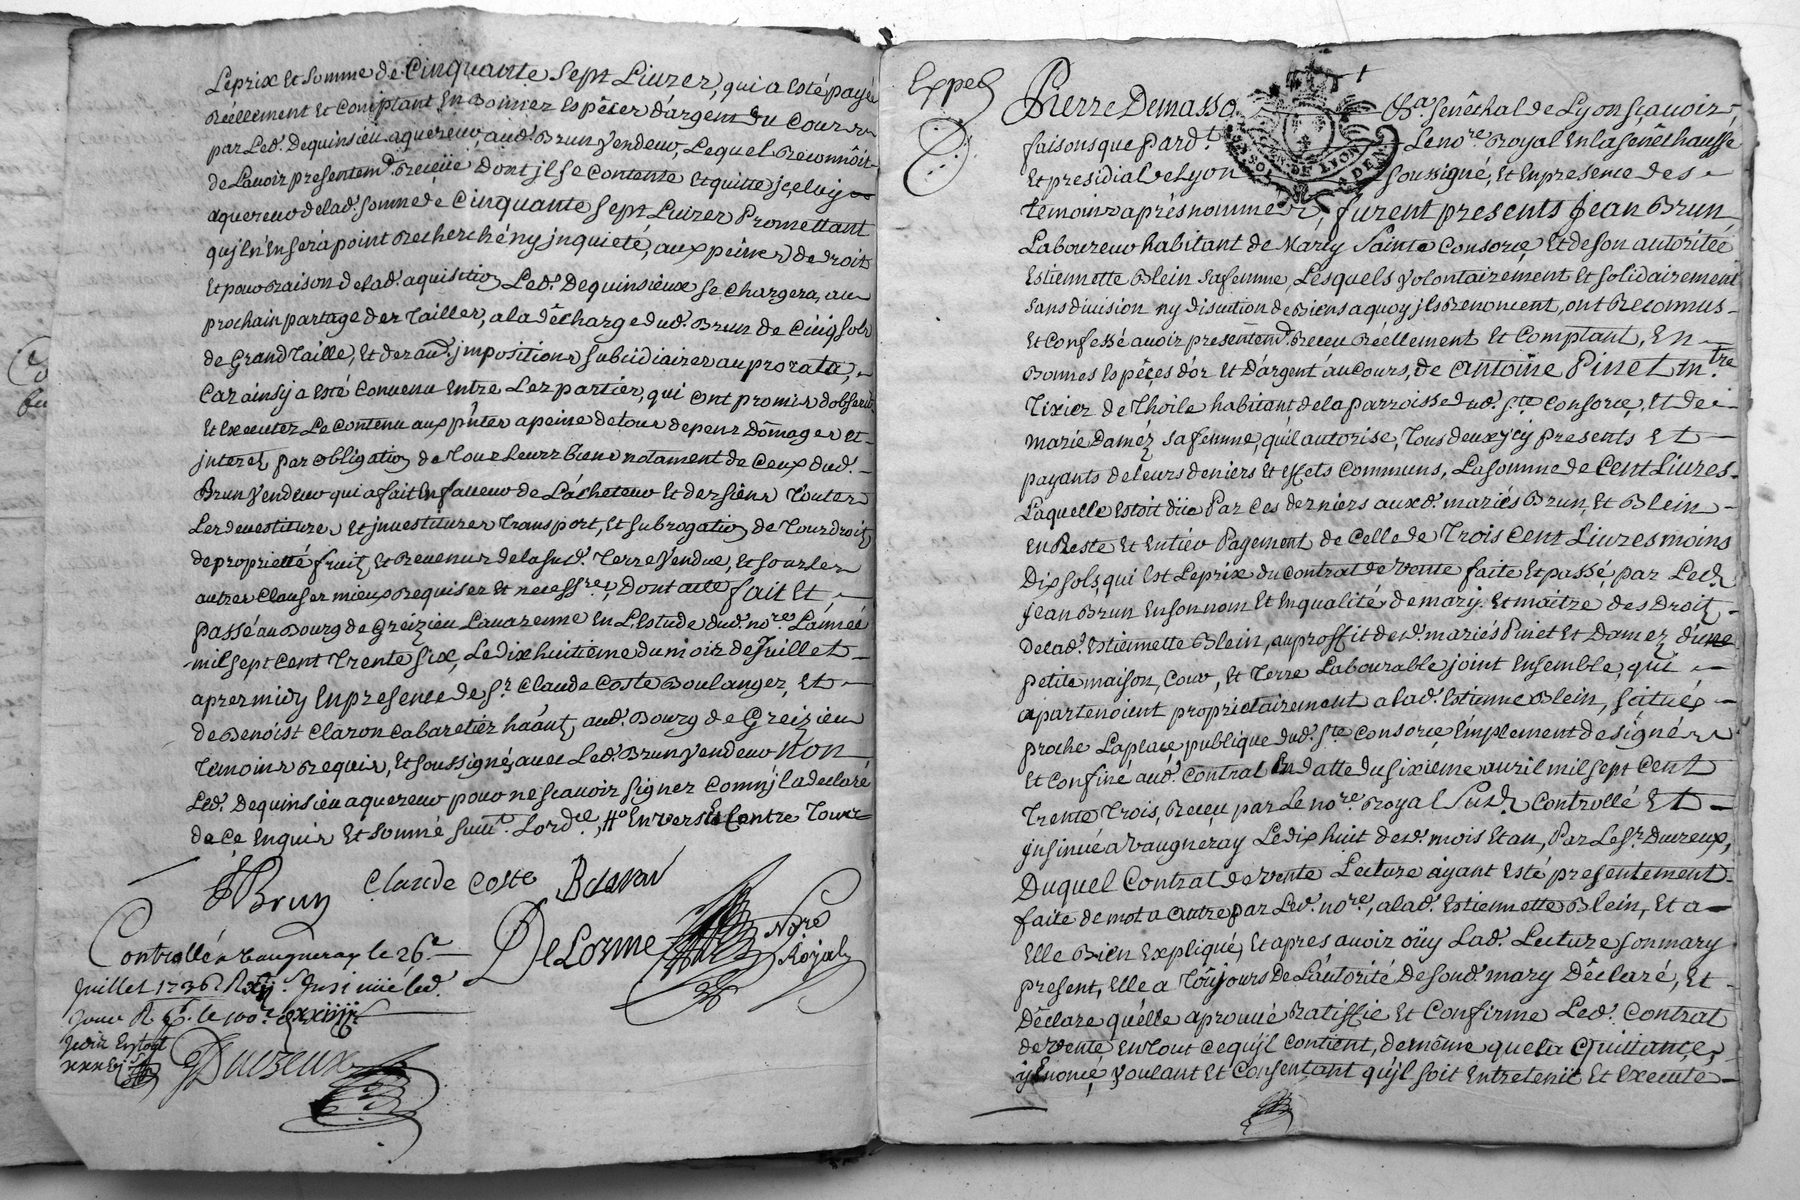 Leprix et somme de Cinquante sept Livres, qui a esté payé
réellement et Comptant en bonnes espêces d'argent du Cour
par Led.t Dequinsieu aquereur, aud.t Brun vendeur, Lequel reconnôit
de Lavoir presentem.t receüe Dont jl se contente et quitte jceluy
aquereur delad.e somme de Cinquante sept Livres Promettant
qujl n'en sera point recherché ny jnquieté, aux peines de droit
et pour raison de lad.e aquisition Led.t Dequinsieux se chargera, au
prochain partage des Tailles, a la dêcharge dud.t Brun de Cinq sols
de Grand Taille, et des au.t jmpositions subcidiaires au prorata,
Car ainsy a esté Convenu entre Les parties, qui ont promis d'observer
et executer Le contenu aux p'ntes a peine de tous depens Dômages et
jnterets par obligation de Tous Leurs biens notament de Ceux dud.t
Brun vendeur qui a fait en faveur de L'acheteur et des siens Toutes
Les devestitures et jnvestitures Transport, et subrogation de Tous droits
de proprietté fruits et revenus de la sud.e Terre vendue, et sous les
autres clauses mieux requises et necess.res Dont acte fait Et
passé au Bourg de Greizieu Lavarenne en L'Estude dud.t no.re L'année
mil sept Cent Trente six, Le Dix huitiême du mois de Juillet
apres midy En presence de S.r Claude Coste Boulanger, et
de Benoist Claron Cabaretier haânts aud.t Bourg de Greizieu
Temoins requis, et soussignés avec Led.t Brun vendeur Non
Led.t Dequinsieu aquereur pour ne scavoir signer Comm'jl a declaré
de ce enquis et sommé suiv.t Lord.ce
JBrun Claude Coste
DeLorme No.re Royal
Controllé a Vaugneray le 26.e
Juillet 1736
Duvreux
Exped
Pierre Demasso Sa. Senêchal de Lyon sçavoir
faisons que Pard.t Le no.re Royal en la senêchaussé
et presidial de Lyon soussigné, et en presence des
temoins aprés nommés, furent presents Jean Brun
Laboureur habitant de Marcy Sainte Consorce, et de son autorité
Estiennette Blein sa femme, Lesquels volontairement et solidairement
sans division ny discution de Biens a quoy jls renoncent, ont reconnus
et Confessé avoir presentem.t receu réellement et Comptant, En
Bonnes espêces d'or et d'argent au Cours, de Antoine Pinet m.tre
Tixier de Thoile habitant de la parroisse dud.t S.te Consorce, et de
marie Daméz sa femme, qu'il autorise, Tous deux jcy presents et
payants de leurs deniers et effets communs, La somme de Cent Livres
Laquelle estoit düe Par ces derniers auxd.t mariés Brun, et Blein
en Reste et entier Payement de Celle de Trois Cent Livres moins
Dix sols, qui est Le prix du contrat de vente faite et passé par Led.t
Jean Brun en son nom et en qualité de mary et maître des Droits
de lad.e Estiennette Blein, au proffit desd.t mariés Pinet et Damez, d'une
petite maison, Cour, et Terre Labourable joint ensemble, qui
apartenoient proprietairement a lad.e Estienne Blein, scitués
proche La place publique dud.t S.te Consorce Emplement désignés
et Confiné aud.t Contrat en datte du sixiême avril mil sept Cent
Trente Trois, Receu par Le no.re Royal Sus.t Controllé et
jnsinué a Vaugneray Le dix huit desd.t mois et an, Par Le S.r Duvreux,
Duquel Contrat de vente Lecture ayant esté presentement
faite de mot a autre par Led.t no.re, a lad.e Estiennette Blein, et a
Elle Bien expliqué, et apres avoir oüy Lad.e Lecture son mary
present, Elle a Toûjours de L'autorité de son d.t mary Dêclaré, et
Dêclare qu'elle aprouve Ratiffie et Confirme Led.t Contrat
de vente en Tout ce qujl contient, de même que la Quittance
y Enoncé, voulant et Consentant qu'jl soit entretenû et executé